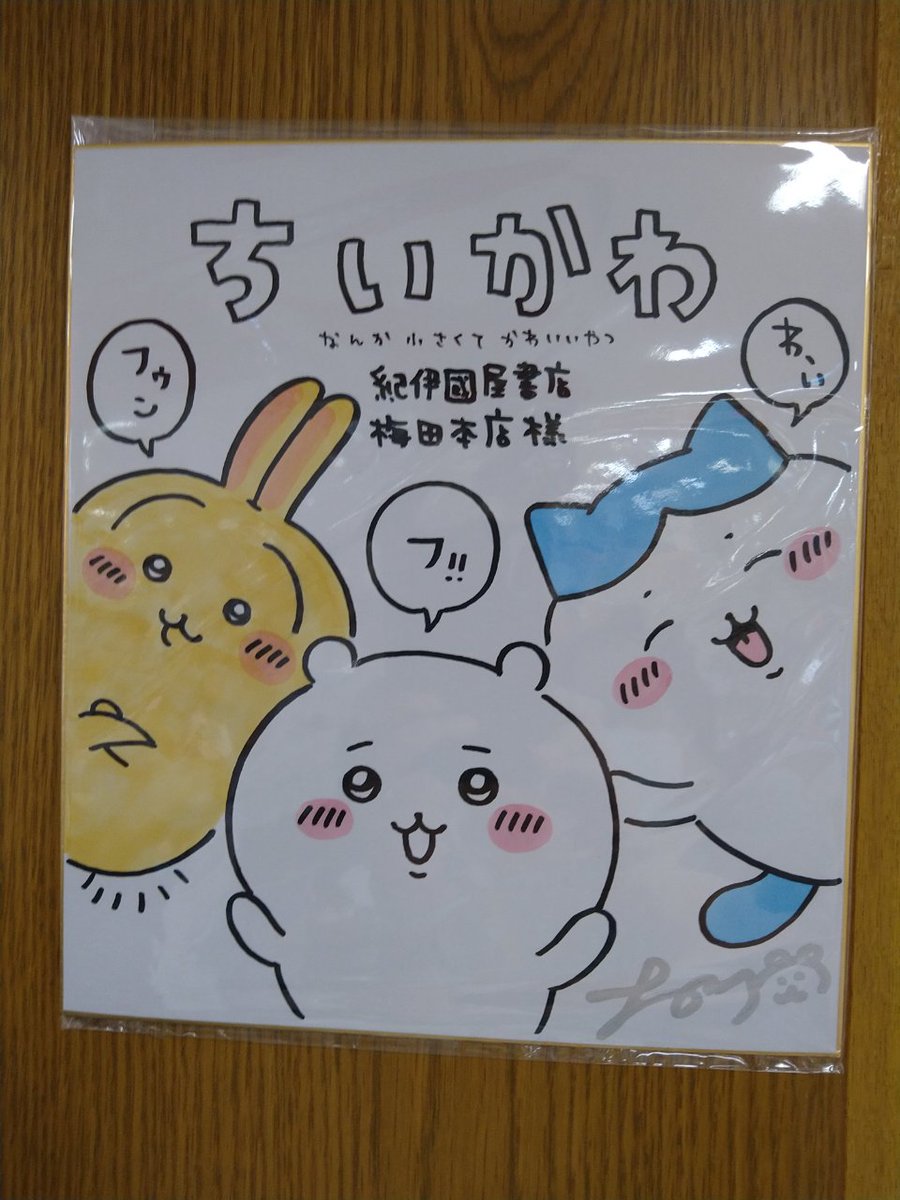 ちいかわ
なんか小さくてかわいいやつ
紀伊國屋書店
梅田本店様
フゥン
フ!!
わ、ぃ